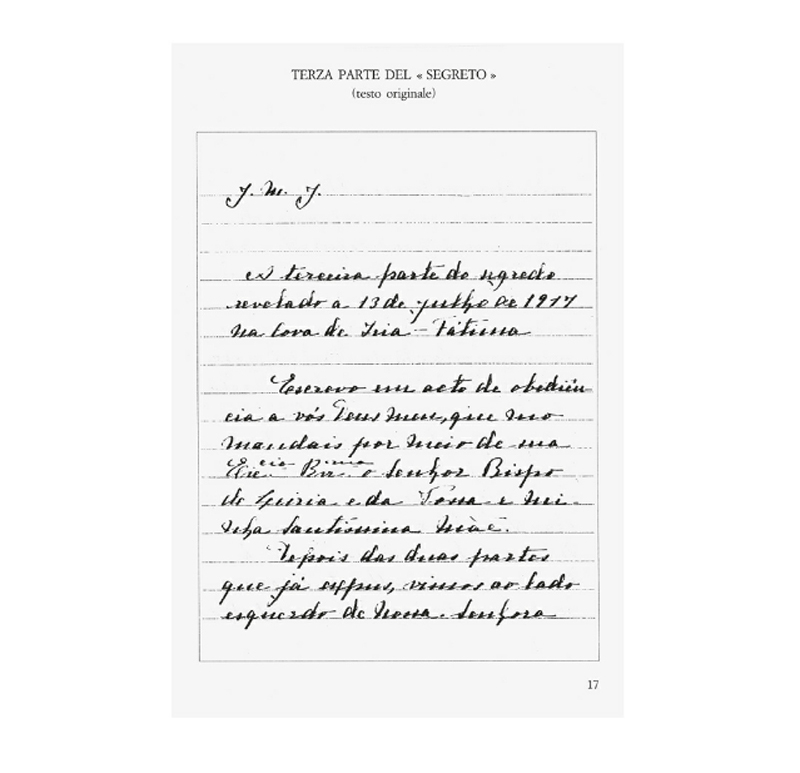 TERZA PARTE DEL « SEGRETO »
(testo originale)
J. M. J.
A terceira parte do segredo
revelado a 13 de julho de 1917
na Cova de Iria – Fátima
Escrevo em acto de obediên
cia a vós Deus meu, que mo
mandais por meio de sua
Ex.cia Rev.ma o Senhor Bispo
de Leiria e da Vossa e mi-
nha Santíssima Mãe.
Depois das duas partes
que já expus, vimos ao lado
esquerdo de Nossa Senhora
17